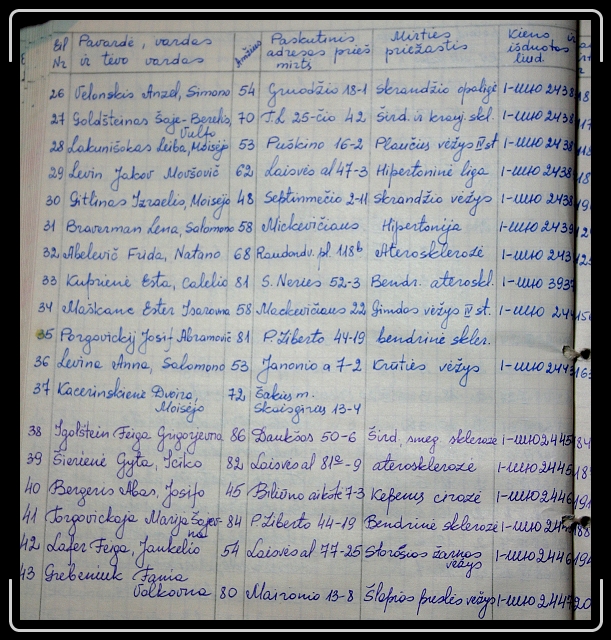 Eil Nr Pavardė, vardas ir tėvo vardas Amžius Paskutinis adresas prieš mirtį Mirties priežastis Kieno išduotas liud.
26 Velonskis Anzel, Simono 54 Gruodžio 18-1 Skrandžio opaligė I-ШЮ 2438
27 Goldšteinas Saje-Berelis, Vulfo 70 T.L 25-čio 42 Šird. ir krauj. skl. I-ШЮ 2438
28 Lakunišokas Leiba, Moisėjo 53 Puškino 16-2 Plaučių vėžys IV st I-ШЮ 2438
29 Levin Jakov Movšovič 62 Laisvės al 47-3 Hipertoninė liga I-ШЮ 2438
30 Gitlinas Izraelis, Moisėjo 48 Septinmečio 2-11 Skrandžio vėžys I-ШЮ 2438
31 Braverman Lena, Salomono 58 Mickevičiaus Hipertonija I-ШЮ 2439
32 Abelevič Frida, Natano 68 Raudondv. pl. 118b Aterosklerozė I-ШЮ 243
33 Kuprienė Esta, Calelio 81 S. Neries 52-3 Bendr. ateroskl. I-ШЮ 3937
34 Maškanc Ester Isarovna 58 Mackevičiaus 22 Gimdos vėžys IV st. I-ШЮ 244
35 Porgovickij Josif Abramovič 81 P. Ziberto 44-19 bendrinė skler.
36 Levina Anna, Salomono 53 Janonio a 7-2 Krūties vėžys I-ШЮ 243
37 Kacerinskienė Dvoira, Moisėjo 72 Šakių m. Skaisgirus 13-4
38 Igolštein Feiga Grigorjevna 86 Daukšos 50-6 Šird, smeg. sklerozė I-ШЮ 2445
39 Šierienė Gyta, Iciko 82 Laisvės al 81a-9 aterosklerozė I-ШЮ 2445
40 Bergeris Abas, Josifo 45 Biliūno aikštė 7-3 Kepenų cirozė I-ШЮ 2446
41 Torgovickaja Marija 84 P. Ziberto 44-19 Bendrinė sklerozė I-ШЮ
42 Lafer Feiga, Jankelio 54 Laisvės al 77-25 Storosios žarnos vėžys I-ШЮ 2446
43 Grebeniuk Fania Volkovna 80 Maironio 13-8 Šlapios pūslės vėžys I-ШЮ 2447